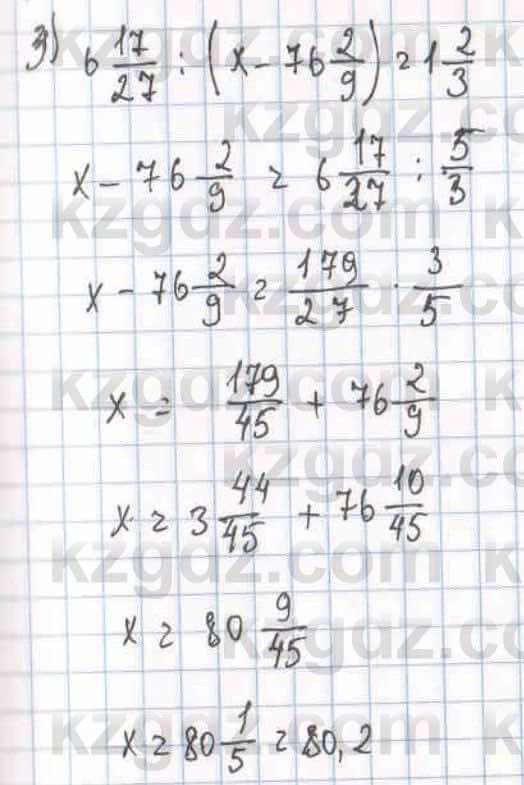 3) 6 17/27 : (x - 76 2/9) = 1 2/3
x - 76 2/9 = 6 17/27 : 5/3
x - 76 2/9 = 179/27 · 3/5
x = 179/45 + 76 2/9
x = 3 44/45 + 76 10/45
x = 80 9/45
x = 80 1/5 = 80,2
kzgdz.com